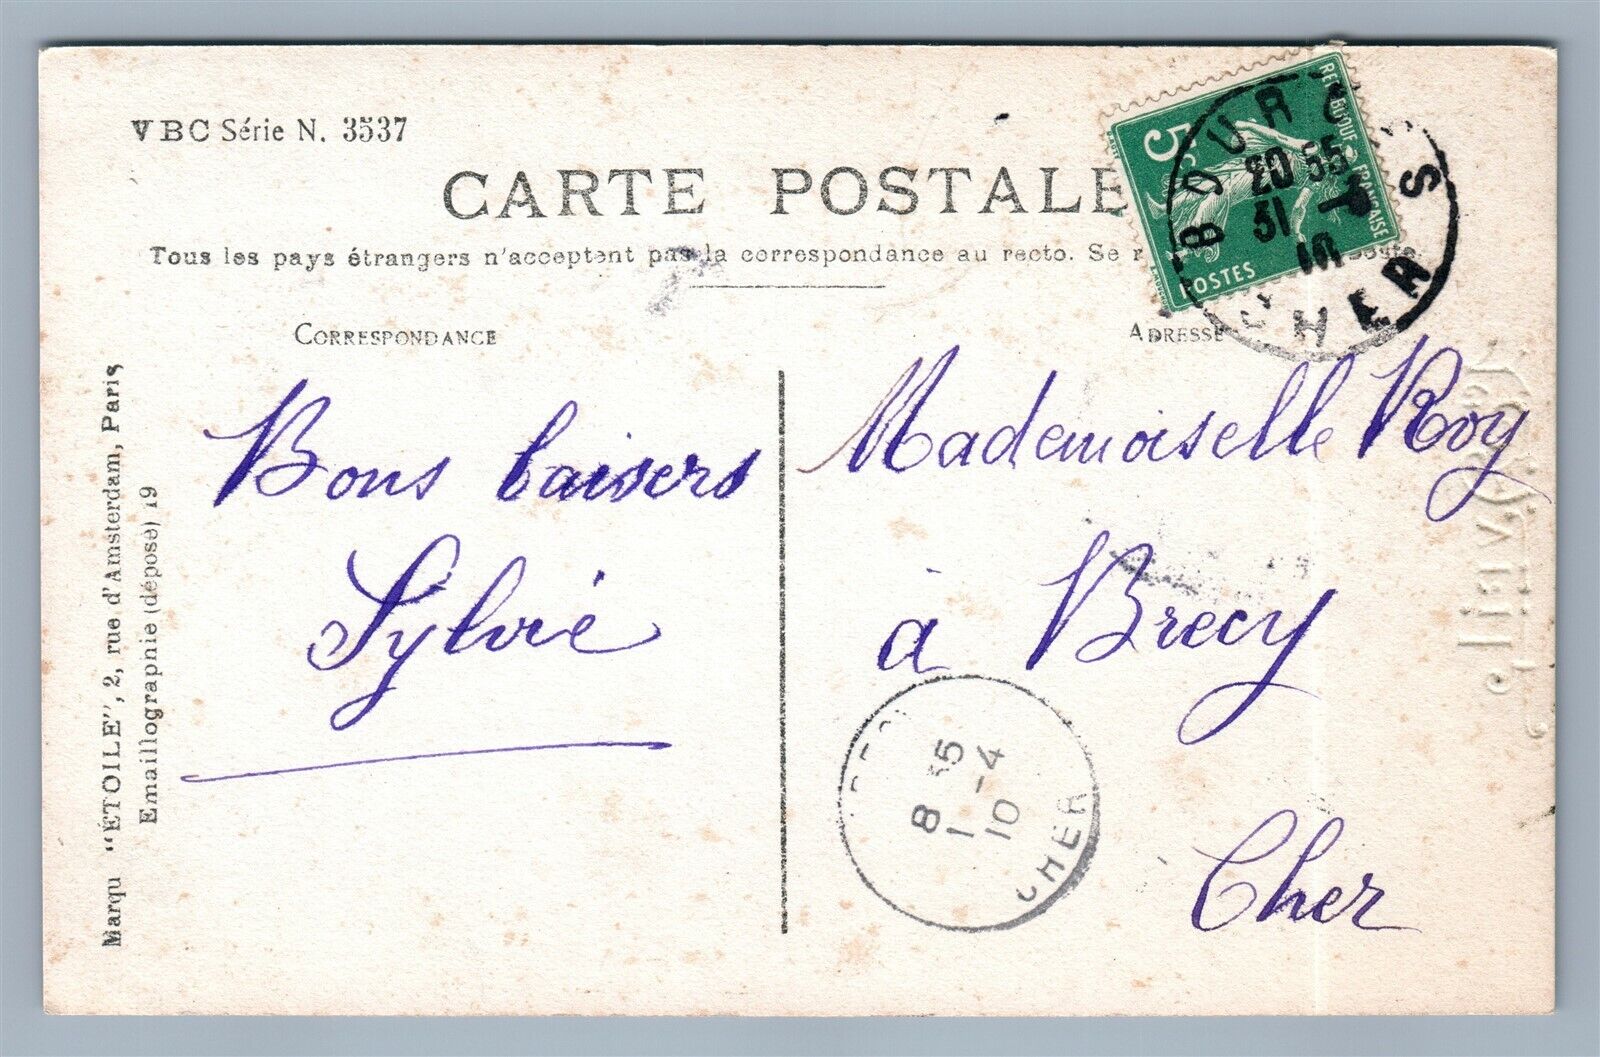 VBC Série N. 3537
CARTE POSTALE
Tous les pays étrangers n'acceptent pas la correspondance au recto. Se
CORRESPONDANCE
ADRESSE
REPUBLIQUE FRANÇAISE
5 c
POSTES
BOURGES
20 55
31
10
CHER
Bons baisers
Sylvie
Mademoiselle Roy
à Brecy
Cher
8 15
1 - 4
10
CHER
Marqu "ÉTOILE", 2, rue d'Amsterdam, Paris
Emaillographie (déposé) 19